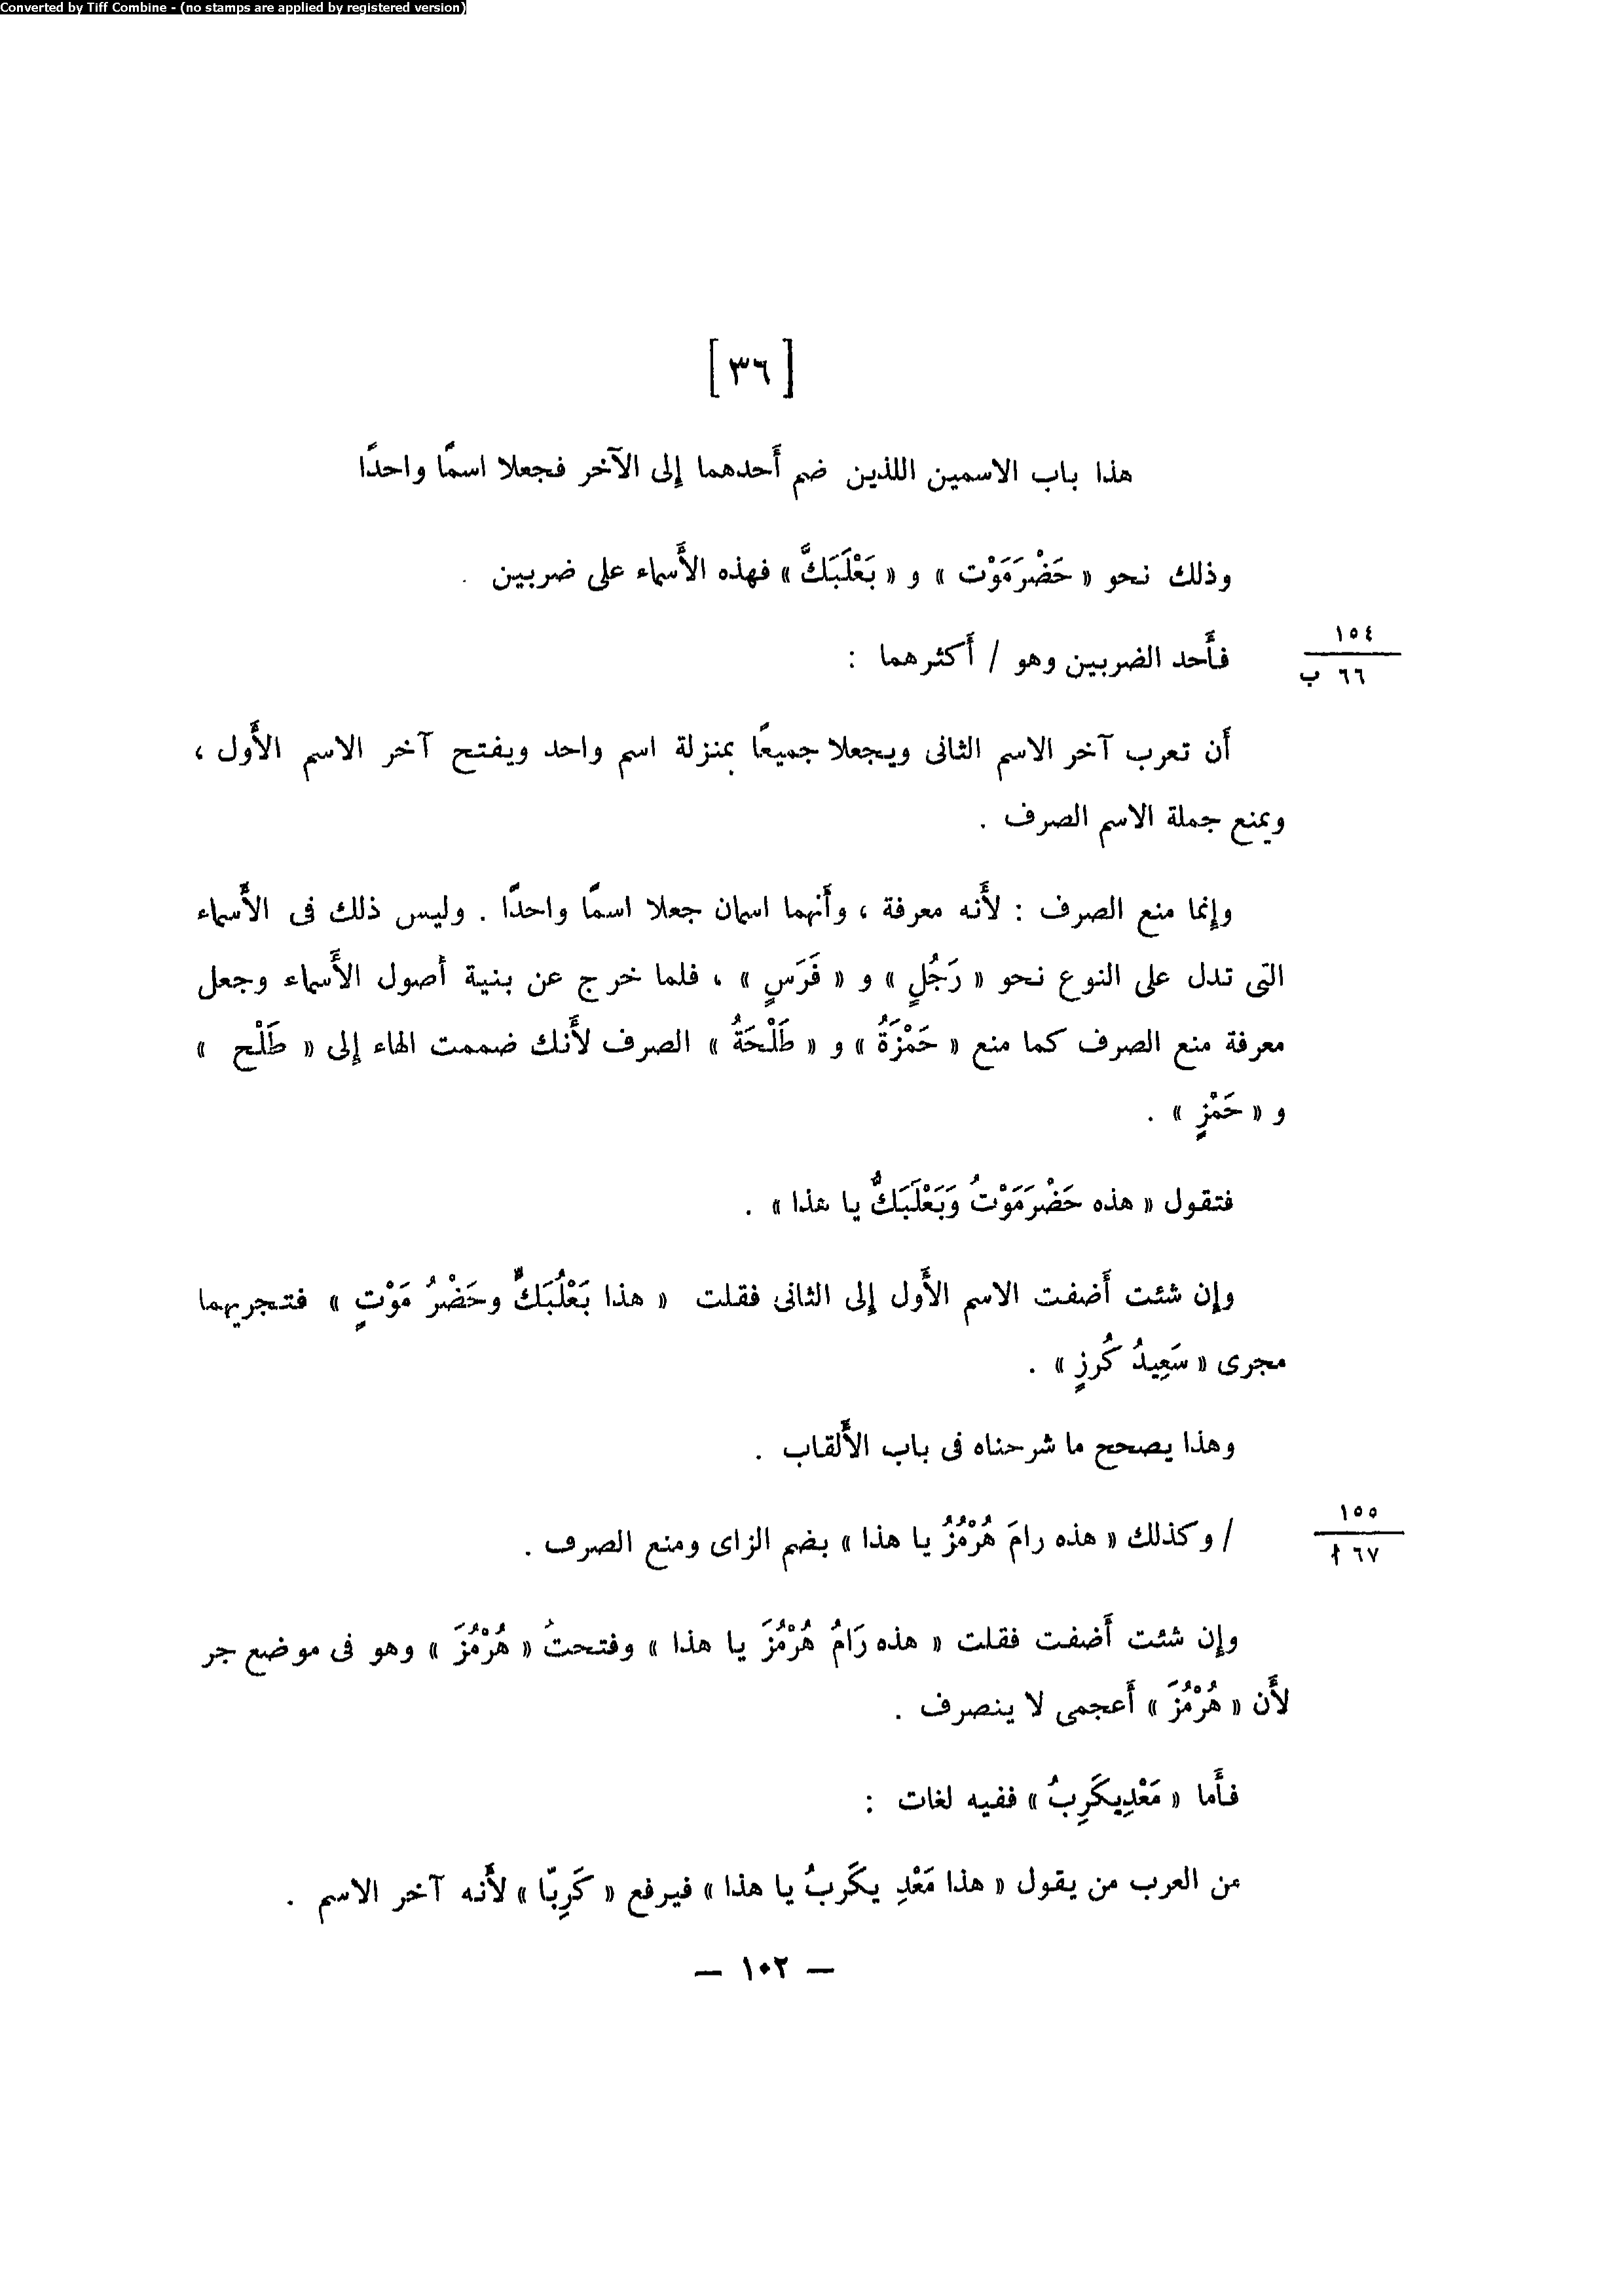 Converted by Tiff Combine - (no stamps are applied by registered version)
[ ٣٦ ]
هذا باب الاسمين اللذين ضم أَحدهما إلى الآخر فجعلا اسمًا واحدًا
وذلك نحو « حَضْرَمَوْت » و « بَعْلَبَكَّ » فهذه الأَسماء على ضربين .
١٥٤
فأَحد الضربين وهو / أَكثرهما :
٦٦ ب
أَن تعرب آخر الاسم الثانى ويجعلا جميعًا بمنزلة اسم واحد ويفتح آخر الاسم الأَول ،
ويمنع جملة الاسم الصرف .
وإنما منع الصرف : لأَنه معرفة ، وأَنهما اسمان جعلا اسمًا واحدًا . وليس ذلك فى الأَسماء
التى تدل على النوع نحو « رَجُلٍ » و « فَرَسٍ » ، فلما خرج عن بنية أصول الأَسماء وجعل
معرفة منع الصرف كما منع « حَمْزَةُ » و « طَلْحَةُ » الصرف لأَنك ضممت الهاء إلى « طَلْح »
و « حَمْزٍ » .
فتقول « هذه حَضْرَمَوْتُ وَبَعْلَبَكُّ يا هذا » .
وإن شئت أَضفت الاسم الأَول إلى الثانى فقلت « هذا بَعْلُبَكٍّ وحَضْرُ مَوْتٍ » فتجريهما
مجرى « سَعِيدُ كُرزٍ » .
وهذا يصحح ما شرحناه فى باب الأَلقاب .
١٥٥
/ وكذلك « هذه رامَ هُرْمُزُ يا هذا » بضم الزاى ومنع الصرف .
٦٧ أ
وإن شئت أَضفت فقلت « هذه رَامُ هُرْمُزَ يا هذا » وفتحتُ « هُرْمُزَ » وهو فى موضع جر
لأَن « هُرْمُزَ » أَعجمى لا ينصرف .
فأَما « مَعْدِيكَرِبُ » ففيه لغات :
من العرب من يقول « هذا مَعْدِ يكَربُ يا هذا » فيرفع « كَرِبّا » لأَنه آخر الاسم .
— ١٠٢ —